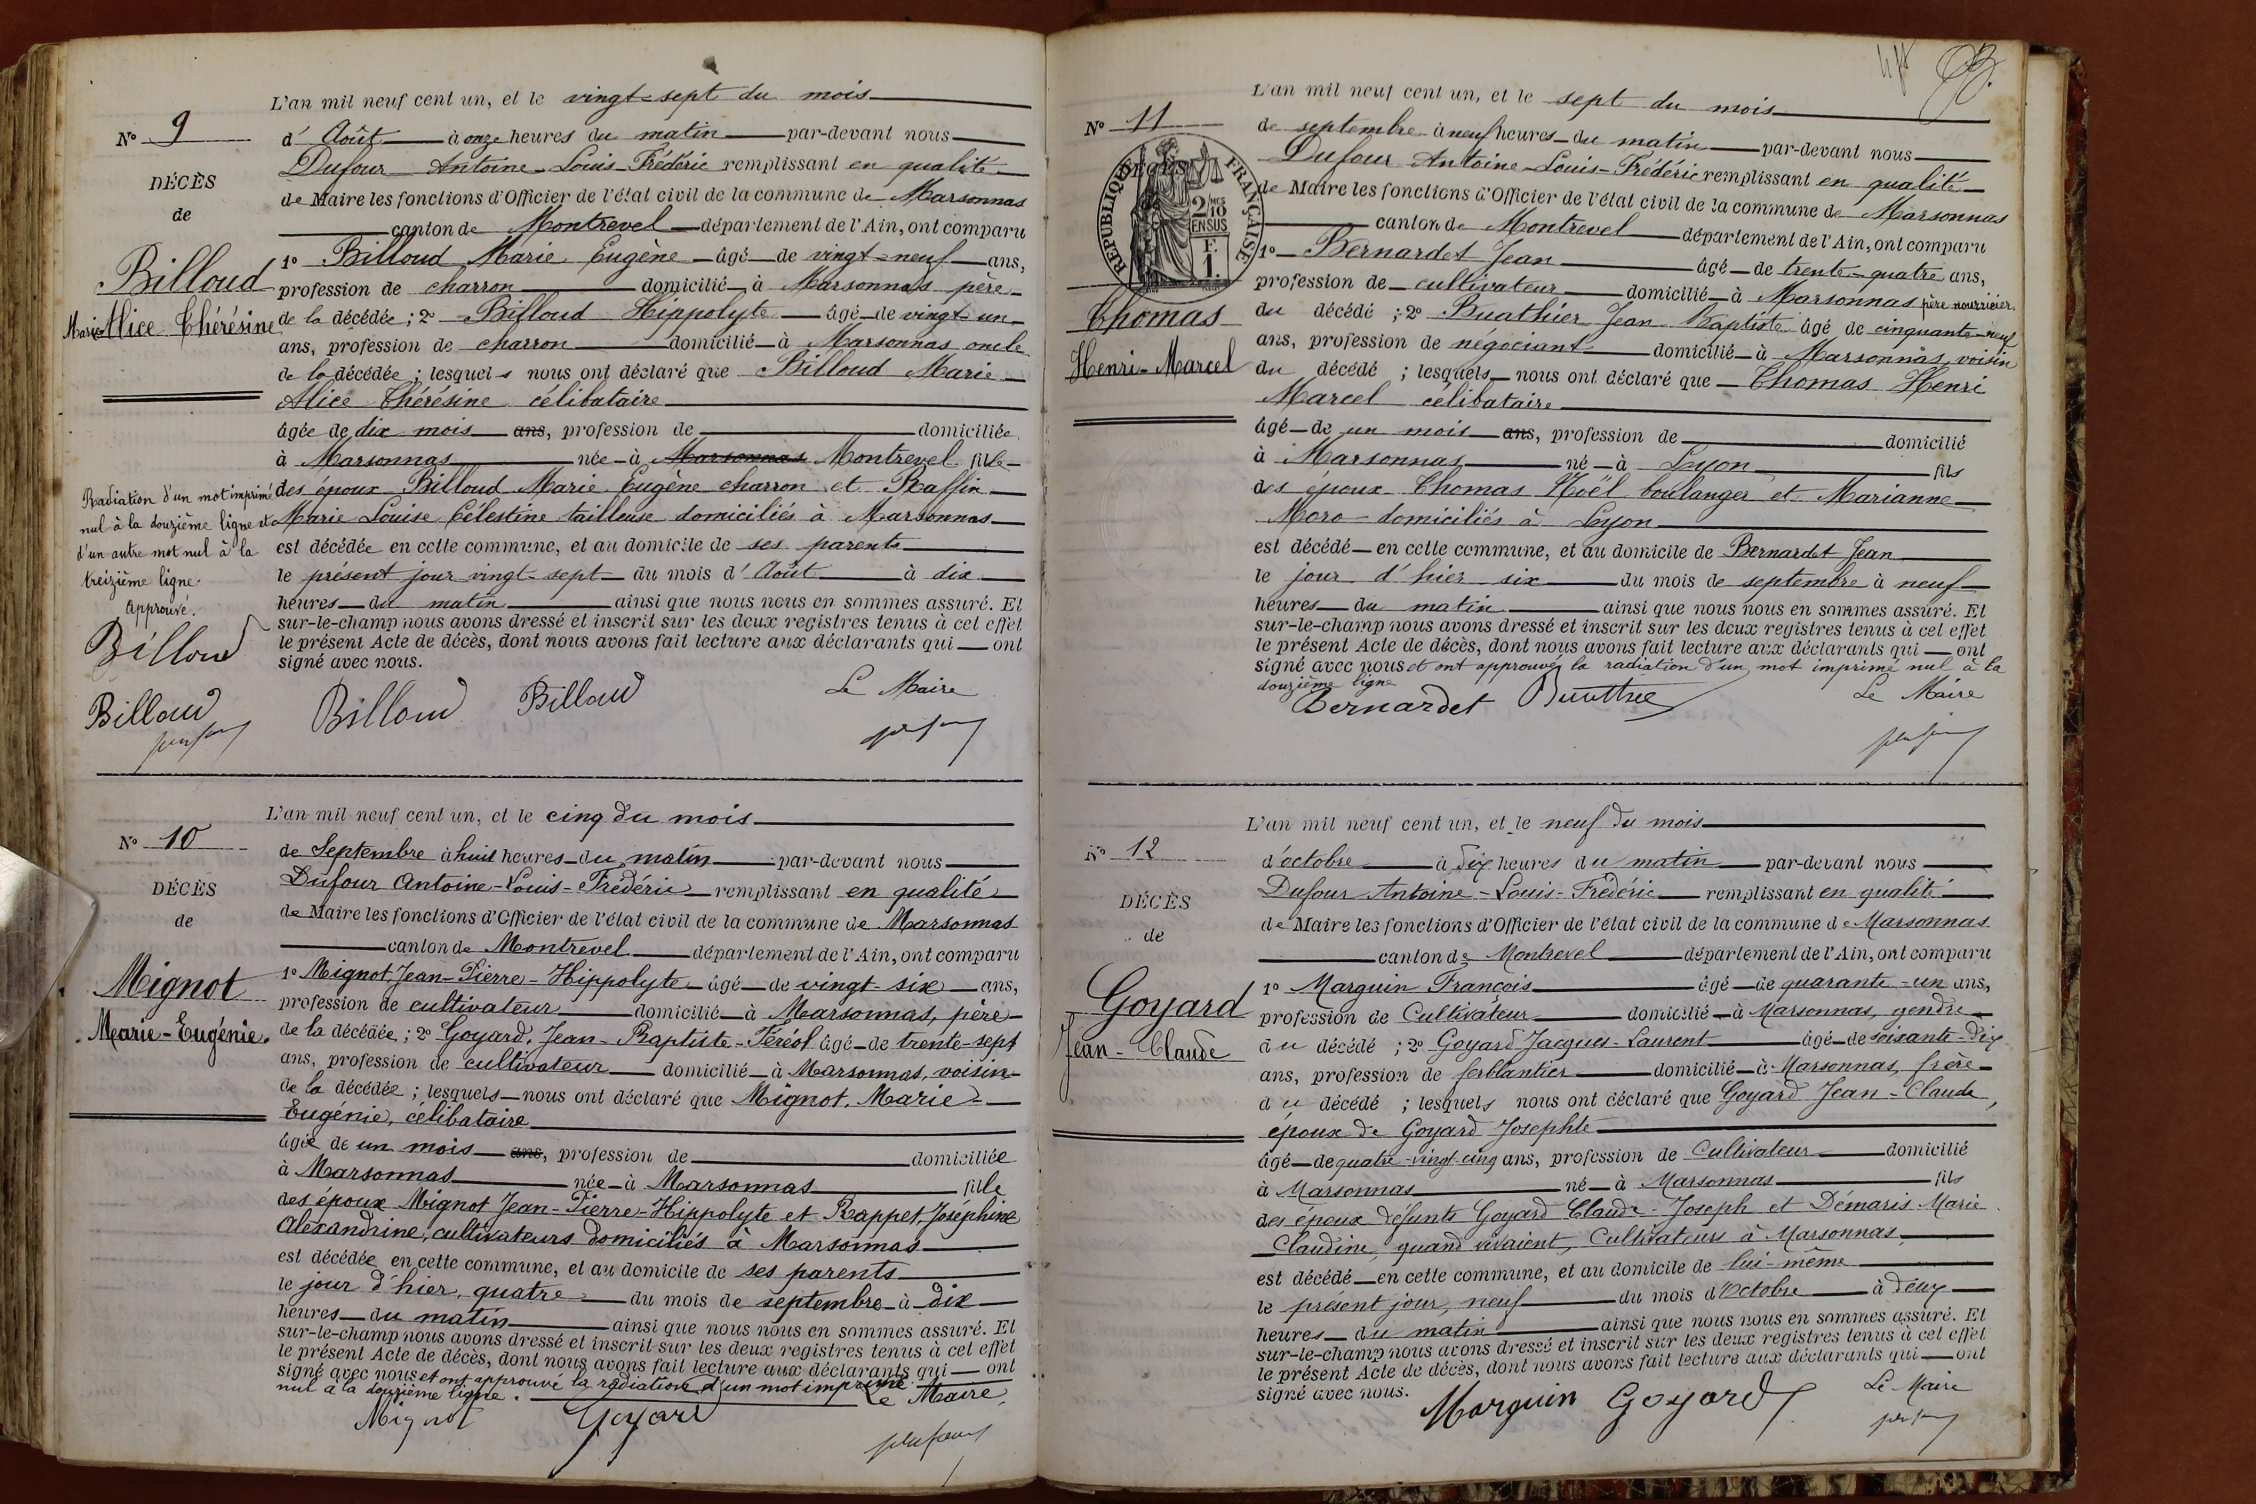 L'an mil neuf cent un, et le vingt-sept du mois
N° 9
d'Août à onze heures du matin par-devant nous
Dufour Antoine-Louis-Frédéric remplissant en qualité
DÉCÈS
de Maire les fonctions d'Officier de l'état civil de la commune de Marsonnas
de
canton de Montrevel département de l'Ain, ont comparu
Billoud
Marie Alice Thérésine
1° Billoud Marie Eugène âgé de vingt-neuf ans,
profession de charron domicilié à Marsonnas père
de la décédée ; 2° Billoud Hippolyte âgé de vingt-un
ans, profession de charron domicilié à Marsonnas oncle
de la décédée ; lesquels nous ont déclaré que Billoud Marie
Alice Thérésine célibataire
âgée de dix mois ans, profession de domiciliée
à Marsonnas née à Marsonnas Montrevel fille
des époux Billoud Marie Eugène charron et Raffin
Marie Louise Célestine tailleuse domiciliés à Marsonnas
est décédée en cette commune, et au domicile de ses parents
le présent jour vingt-sept du mois d'Août à dix
heures du matin ainsi que nous nous en sommes assuré. Et
sur-le-champ nous avons dressé et inscrit sur les deux registres tenus à cet effet
le présent Acte de décès, dont nous avons fait lecture aux déclarants qui ont
signé avec nous.
Radiation d'un mot imprimé
nul à la douzième ligne et
d'un autre mot nul à la
treizième ligne.
Approuvé.
Billoud
Billoud
Billoud Billoud Le Maire
L'an mil neuf cent un, et le cinq du mois
N° 10
de Septembre à huit heures du matin par-devant nous
Dufour Antoine-Louis-Frédéric remplissant en qualité
DÉCÈS
de Maire les fonctions d'Officier de l'état civil de la commune de Marsonnas
de
canton de Montrevel département de l'Ain, ont comparu
Mignot
Marie-Eugénie.
1° Mignot Jean-Pierre-Hippolyte âgé de vingt-six ans,
profession de cultivateur domicilié à Marsonnas, père
de la décédée ; 2° Goyard, Jean-Baptiste-Féréol âgé de trente-sept
ans, profession de cultivateur domicilié à Marsonnas, voisin
de la décédée ; lesquels nous ont déclaré que Mignot, Marie-
Eugénie, célibataire
âgée de un mois ans, profession de domiciliée
à Marsonnas née à Marsonnas fille
des époux Mignot Jean-Pierre-Hippolyte et Rappet, Joséphine
Alexandrine, cultivateurs domiciliés à Marsonnas
est décédée en cette commune, et au domicile de ses parents
le jour d'hier, quatre du mois de septembre à dix
heures du matin ainsi que nous nous en sommes assuré. Et
sur-le-champ nous avons dressé et inscrit sur les deux registres tenus à cet effet
le présent Acte de décès, dont nous avons fait lecture aux déclarants qui ont
signé avec nous et ont approuvé la radiation d'un mot imprimé
nul à la douzième ligne. Le Maire,
Mignot Goyard
L'an mil neuf cent un, et le sept du mois
N° 11
de septembre à neuf heures du matin par-devant nous
Dufour Antoine-Louis-Frédéric remplissant en qualité
DÉCÈS
RÉPUBLIQUE FRANÇAISE
2/10 EN SUS
F. 1.
de Maire les fonctions d'Officier de l'état civil de la commune de Marsonnas
canton de Montrevel département de l'Ain, ont comparu
Thomas
Henri-Marcel
1° Bernardet Jean âgé de trente-quatre ans,
profession de cultivateur domicilié à Marsonnas père nourricier
du décédé ; 2° Buathier Jean Baptiste âgé de cinquante-neuf
ans, profession de négociant domicilié à Marsonnas, voisin
du décédé ; lesquels nous ont déclaré que Thomas Henri
Marcel célibataire
âgé de un mois ans, profession de domicilié
à Marsonnas né à Lyon fils
des époux Thomas Noël boulanger et Marianne
Moro domiciliés à Lyon
est décédé en cette commune, et au domicile de Bernardet Jean
le jour d'hier six du mois de septembre à neuf
heures du matin ainsi que nous nous en sommes assuré. Et
sur-le-champ nous avons dressé et inscrit sur les deux registres tenus à cet effet
le présent Acte de décès, dont nous avons fait lecture aux déclarants qui ont
signé avec nous et ont approuvé la radiation d'un mot imprimé nul à la
douzième ligne Le Maire
Bernardet
L'an mil neuf cent un, et le neuf du mois
N° 12
d'octobre à dix heures du matin par-devant nous
Dufour Antoine-Louis-Frédéric remplissant en qualité
DÉCÈS
de Maire les fonctions d'Officier de l'état civil de la commune de Marsonnas
de
canton de Montrevel département de l'Ain, ont comparu
Goyard
Jean-Claude
1° Marguin François âgé de quarante-un ans,
profession de Cultivateur domicilié à Marsonnas, gendre
du décédé ; 2° Goyard Jacques-Laurent âgé de soisante-dix
ans, profession de ferblantier domicilié à Marsonnas, frère
du décédé ; lesquels nous ont déclaré que Goyard Jean-Claude,
époux de Goyard Josephte
âgé de quatre-vingt-cinq ans, profession de Cultivateur domicilié
à Marsonnas né à Marsonnas fils
des époux défunts Goyard Claude-Joseph et Démaris Marie
Claudine, quand vivaient, Cultivateurs à Marsonnas,
est décédé en cette commune, et au domicile de lui-même
le présent jour, neuf du mois d'Octobre à deux
heures du matin ainsi que nous nous en sommes assuré. Et
sur-le-champ nous avons dressé et inscrit sur les deux registres tenus à cet effet
le présent Acte de décès, dont nous avons fait lecture aux déclarants qui ont
signé avec nous. Le Maire
Marguin Goyard